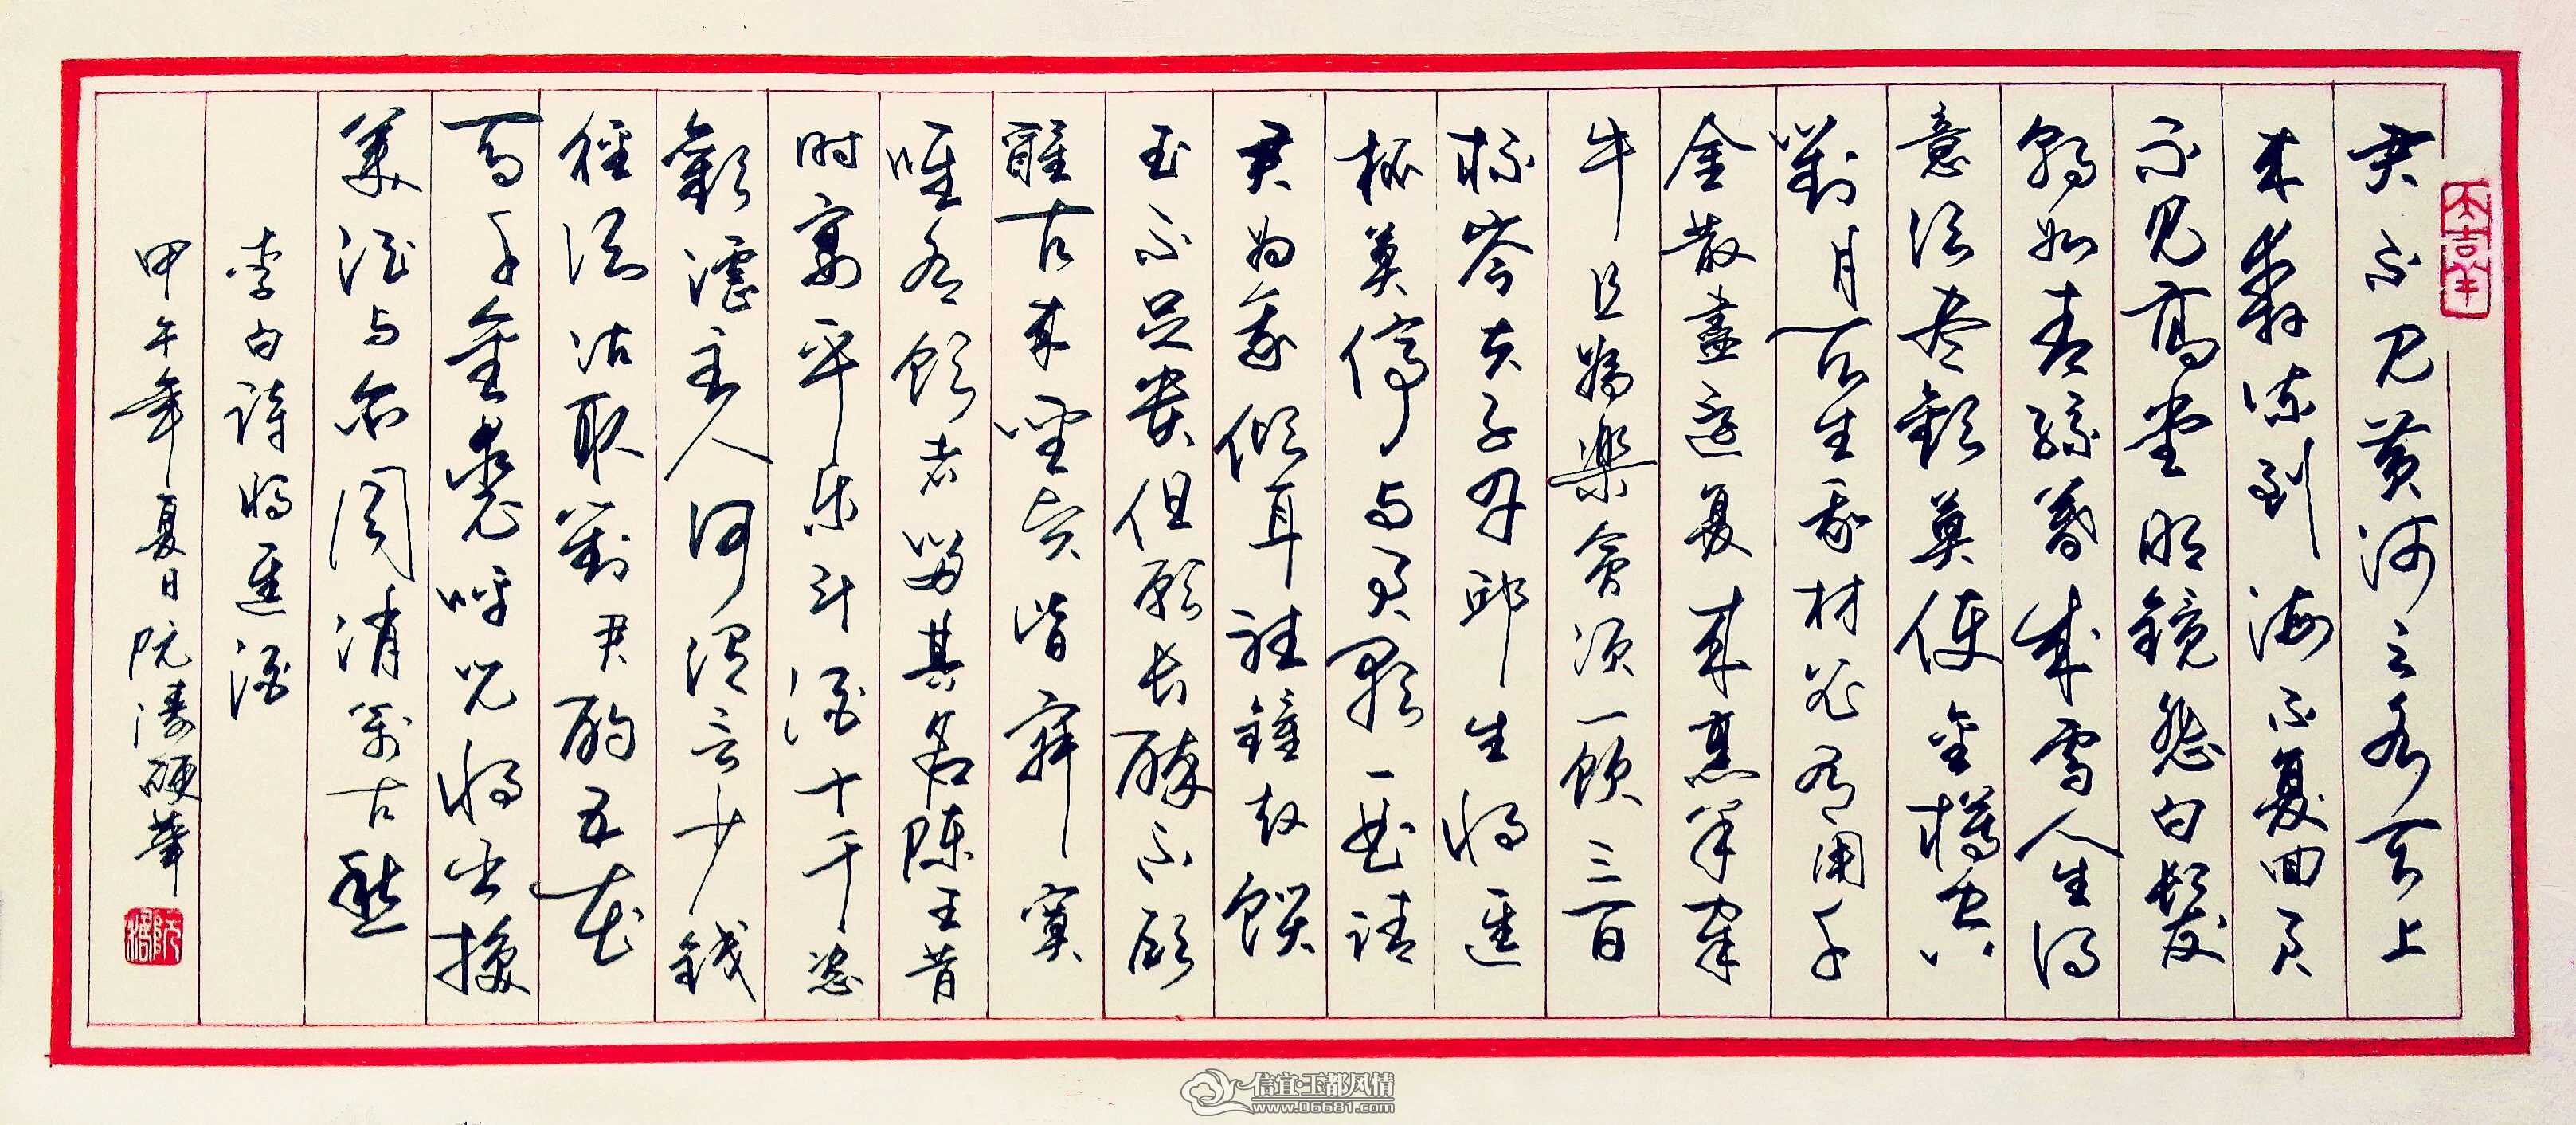 大吉羊
君不见黄河之水天上
来奔流到海不复回君
不见高堂明镜悲白髮
朝如青絲暮成雪人生得
意须尽歡莫使金樽空
對月天生我材必有用千
金散盡還复来烹羊宰
牛且為樂會须一飲三百
杯岑夫子丹邱生将進
杯莫停与君歌一曲請
君为我倾耳聽鐘鼓饌
玉不足贵但願长醉不願
醒古来聖贤皆寂寞
唯有飲者留其名陳王昔
时宴平乐斗酒十千恣
歡謔主人何謂言少錢
徑须沽取對君酌五花
馬千金裘呼児将出换
美酒与尔同消萬古愁
李白詩将進酒
甲午年夏日阮濤硬筆
信宜·玉都风情
www.06681.com